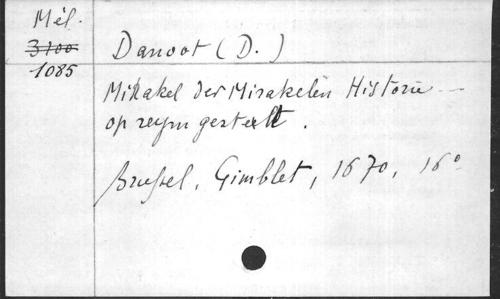 Mél.
3100
1085
Danoot (D.)
Mirakel der Mirakelen Historie —
op reym gestelt.
Brussel, Gimblet, 1670, 16°